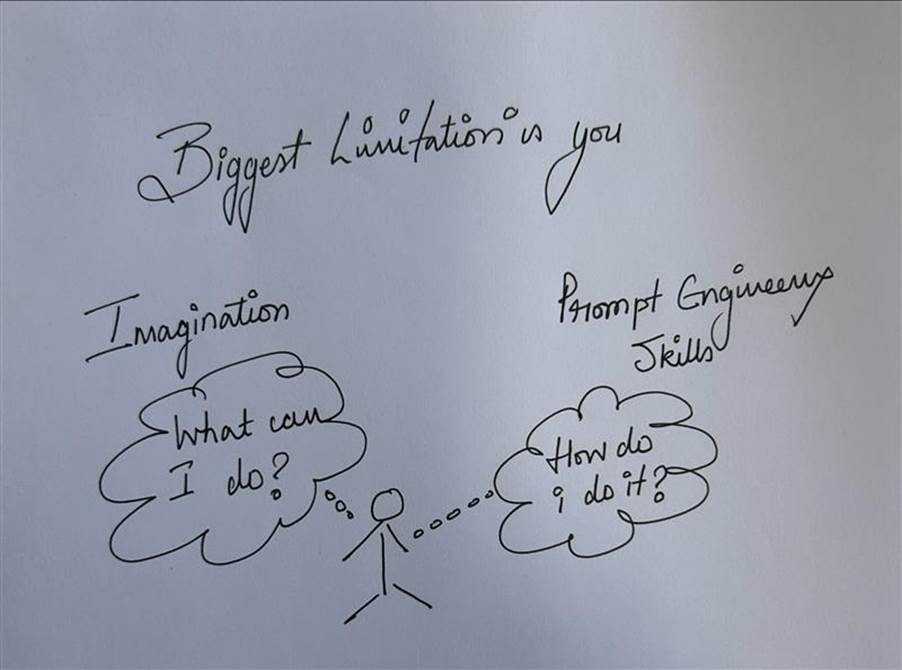 Biggest Limitation is you
Imagination
What can
I do?
Prompt Engineering
Skills
How do
i do it?